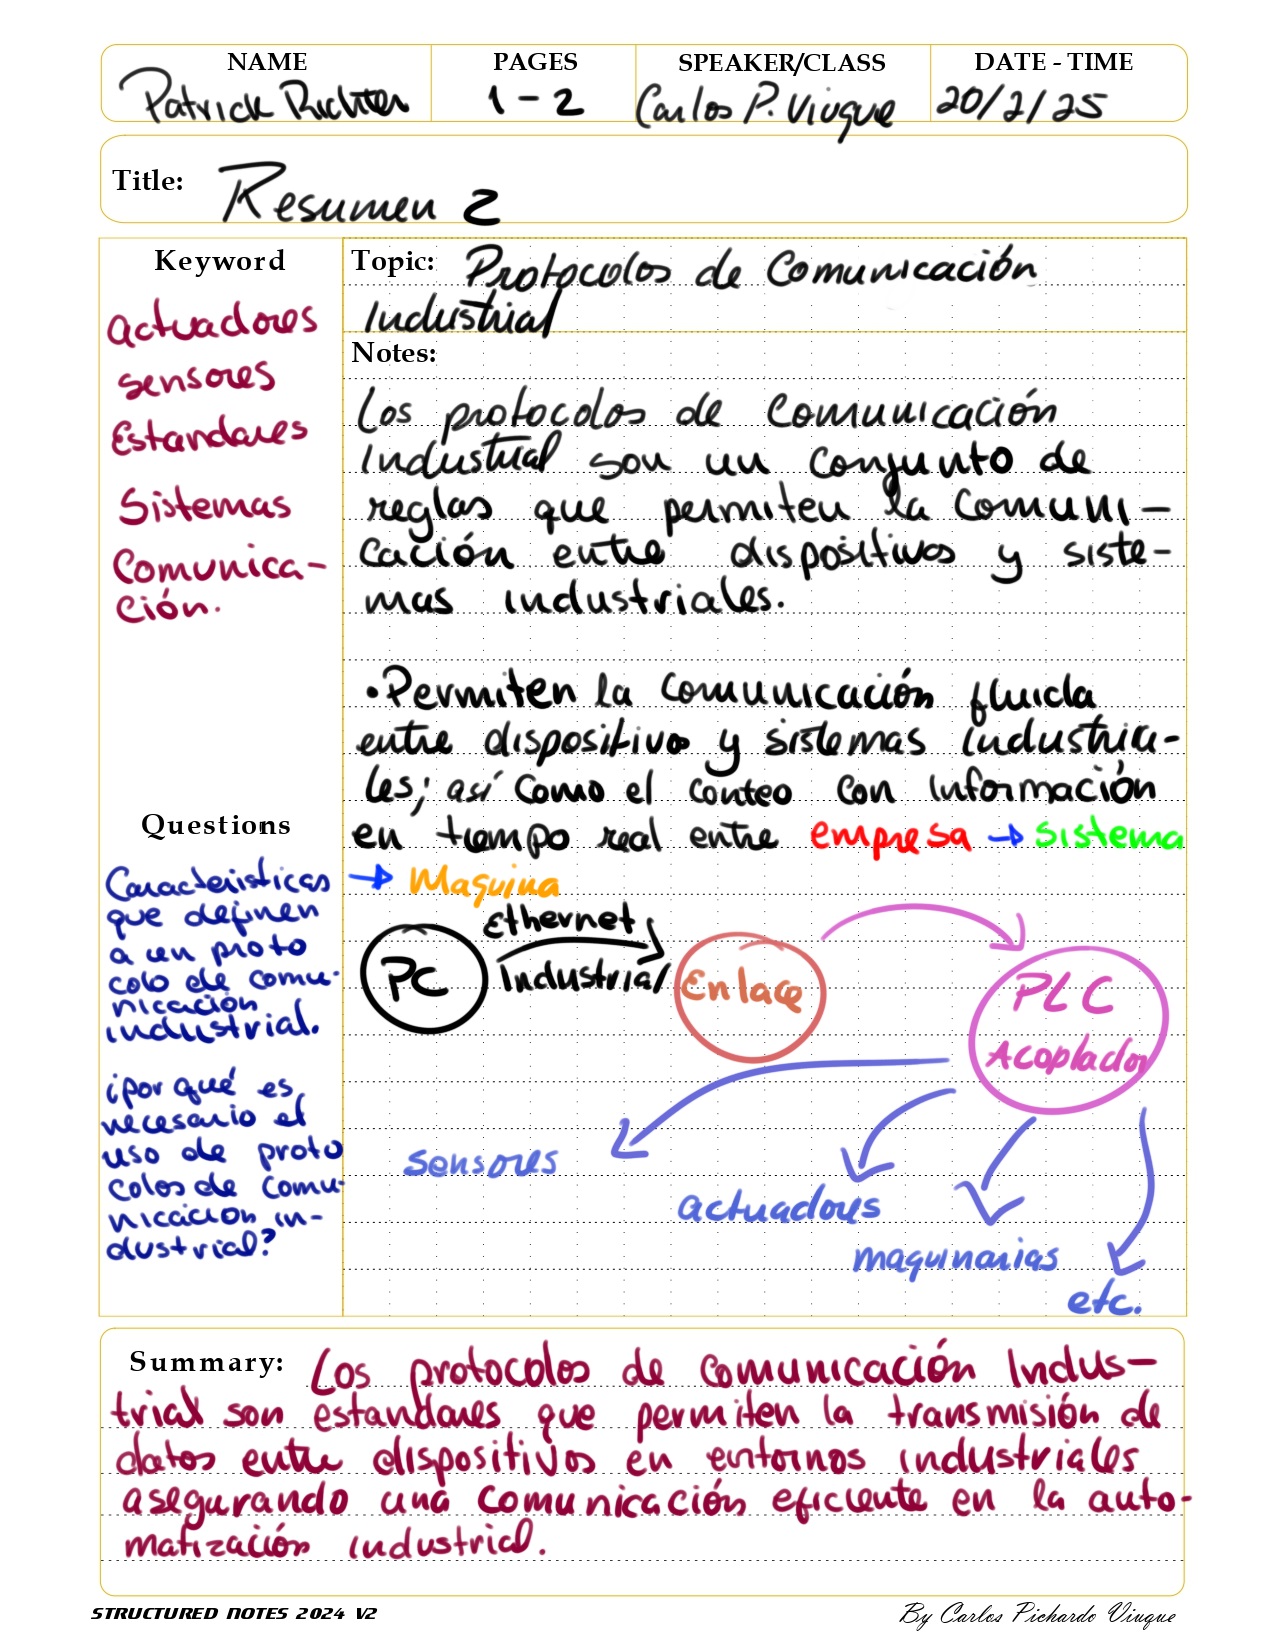 NAME PAGES SPEAKER/CLASS DATE - TIME
Patrick Richter 1 - 2 Carlos P. Viuque 20/2/25
Title: Resumen 2
Keyword
actuadores
sensores
Estandares
Sistemas
Comunica-
ción.
Questions
Caracteristicas
que definen
a un proto
colo de comu-
nicación
industrial.
¿por qué es
necesario el
uso de proto
colos de comu-
nicacion in-
dustrial?
Topic: Protocolos de Comunicación
Industrial
Notes:
Los protocolos de Comunicación
Industrial son un conjunto de
reglas que permiten la comuni-
cación entre dispositivos y siste-
mas industriales.
•Permiten la comunicación fluida
entre dispositivo y sistemas industria-
les; así como el conteo con información
en tiempo real entre empresa → sistema
→ Maquina
PC
Ethernet
Industrial
Enlace
PLC
Acoplador
sensores
actuadores
maquinarias
etc.
Summary: Los protocolos de comunicación Indus-
trial son estandares que permiten la transmisión de
datos entre dispositivos en entornos industriales
asegurando una comunicación eficiente en la auto-
matización industrial.
STRUCTURED NOTES 2024 V2
By Carlos Pichardo Viuque